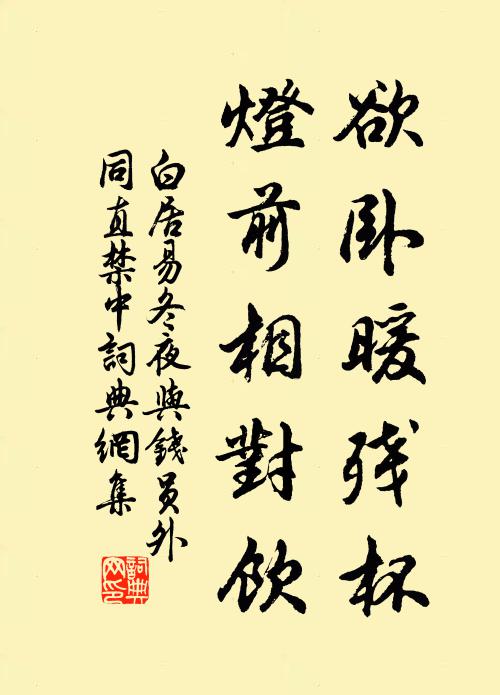 欲卧暖残杯
燈前相對飲
白居易冬夜與錢員外
同直禁中詞典網集
詞典网印